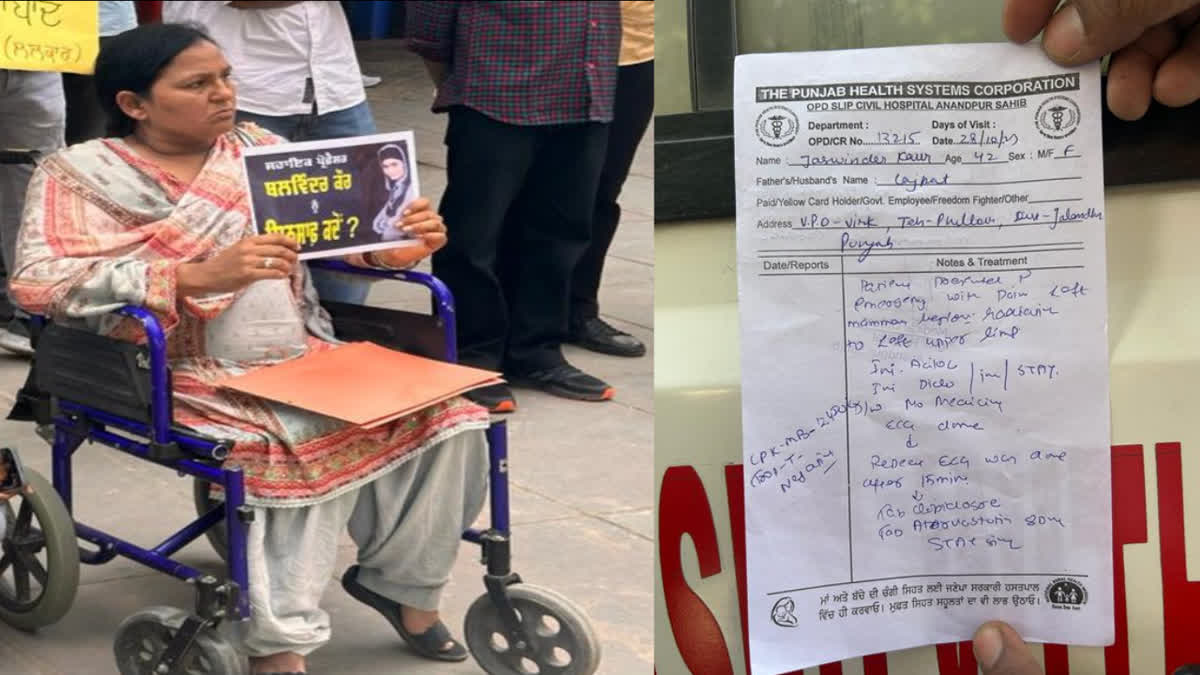 (ਲਲਕਾਰ)
ਸਹਾਇਕ ਪ੍ਰੋਫੈਸਰ
ਬਲਵਿੰਦਰ ਕੌਰ
ਨੂੰ
ਇਨਸਾਫ਼ ਕਦੋਂ ?
THE PUNJAB HEALTH SYSTEMS CORPORATION
OPD SLIP CIVIL HOSPITAL ANANDPUR SAHIB
Department : Days of Visit :
OPD/CR No. 13215 Date 28/10/
Name : Jaswinder Kaur Age 42 Sex : M/F F
Father's/Husband's Name : Lajpat
Paid/Yellow Card Holder/Govt. Employee/Freedom Fighter/Other
Address V.P.O - Virk, Teh-Phillour, Jalandhar
Punjab
Date/Reports Notes & Treatment
emergency with Pain Left
mammary region radiating
to Left upper limb
Inj. Aciloc
Inj Diclo / im / STAT.
CPK-MB-
ECG done
Repeat ECG was done
after 15min
Tab Atorvastatin 80mg
STAT
ਮਾਂ ਅਤੇ ਬੱਚੇ ਦੀ ਚੰਗੀ ਸਿਹਤ ਲਈ ਜਣੇਪਾ ਸਰਕਾਰੀ ਹਸਪਤਾਲ
ਵਿੱਚ ਹੀ ਕਰਵਾਓ। ਮੁਫ਼ਤ ਸਿਹਤ ਸਹੂਲਤਾਂ ਦਾ ਵੀ ਲਾਭ ਉਠਾਓ।